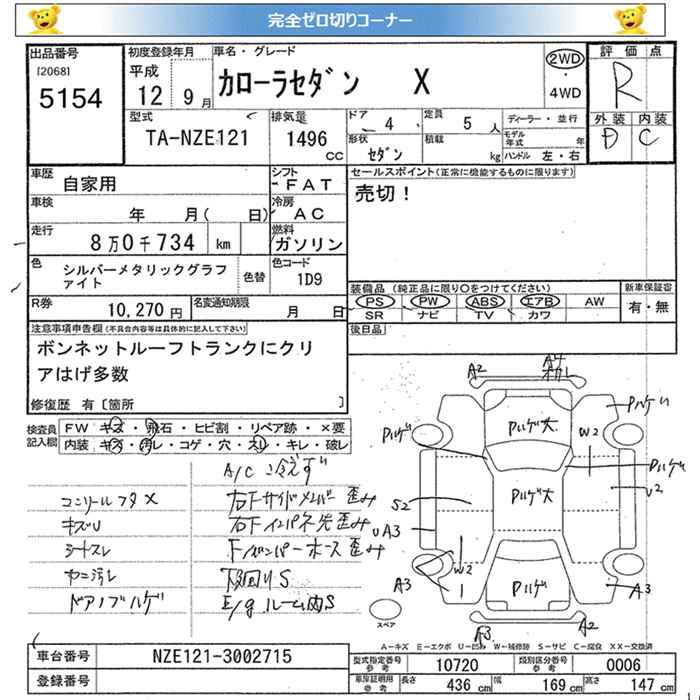 完全ゼロ切りコーナー
出品番号 初度登録年月 車名・グレード 評価点
[2068] 平成 カローラセダン X 2WD R
5154 12 9月 ・ 4WD 外装 内装
型式 排気量 ドア 4 定員 5人 ディーラー・並行 D C
TA-NZE121 1496 cc 形状 セダン 積載 kg モデル年式 年
ハンドル 左・右
車歴 自家用 シフト FAT セールスポイント(正常に機能するものに限ります)
車検 年 月( 日) 冷房 AC 売切!
走行 8万0千734 km 燃料 ガソリン
色 シルバーメタリックグラファイト 色替 色コード 1D9
装備品 (純正品に限り○をつけてください) 新車保証書
R券 10,270円 名変通知期限 月 日 PS PW ABS エアB AW 有・無
SR ナビ TV カワ
注意事項申告欄(不具合内容等は具体的に記入して下さい) 後日品
ボンネットルーフトランクにクリ
アはげ多数
修復歴 有〔箇所 〕
検査員記入欄 FW キズ・飛石・ヒビ割・リペア跡・×要
内装 キズ・汚レ・コゲ・穴・スレ・キレ・破レ
A/C 冷えず
コンソールフタ× 右Fサイドメンバー歪み
キズU 右Fインパネ先歪み
シートスレ Fバンパーホース歪み
ヤニ汚レ 下回りS
ドアノブハゲ E/gルーム内S
A2 A4
Pハゲ Pハゲ大 Pハゲ
W2 Pハゲ
S2 Pハゲ大 U2
UA3
W2
A3 1 Pハゲ A3
スペア A3 A2
A-キズ E-エクボ U-凹み W-補修跡 S-サビ C-腐食 XX-交換済
車台番号 NZE121-3002715 型式指定番号 参考 10720 類別区分番号 参考 0006
登録番号 車庫証明用 参考 長さ 436 cm 幅 169 cm 高さ 147 cm